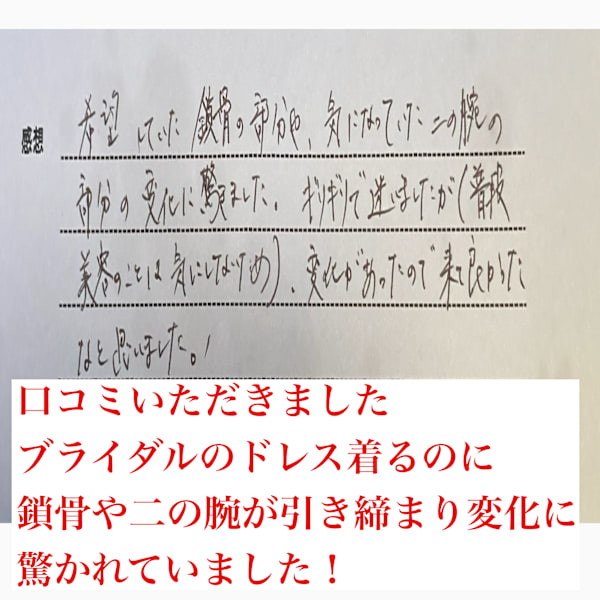 感想
希望していた鎖骨の部分や、気になっていた二の腕の
部分の変化に驚きました。ギリギリで迷いましたが(普段
美容のことは気にしないため)、変化があったので来て良かった
なと思いました。!
口コミいただきました
ブライダルのドレス着るのに
鎖骨や二の腕が引き締まり変化に
驚かれていました！